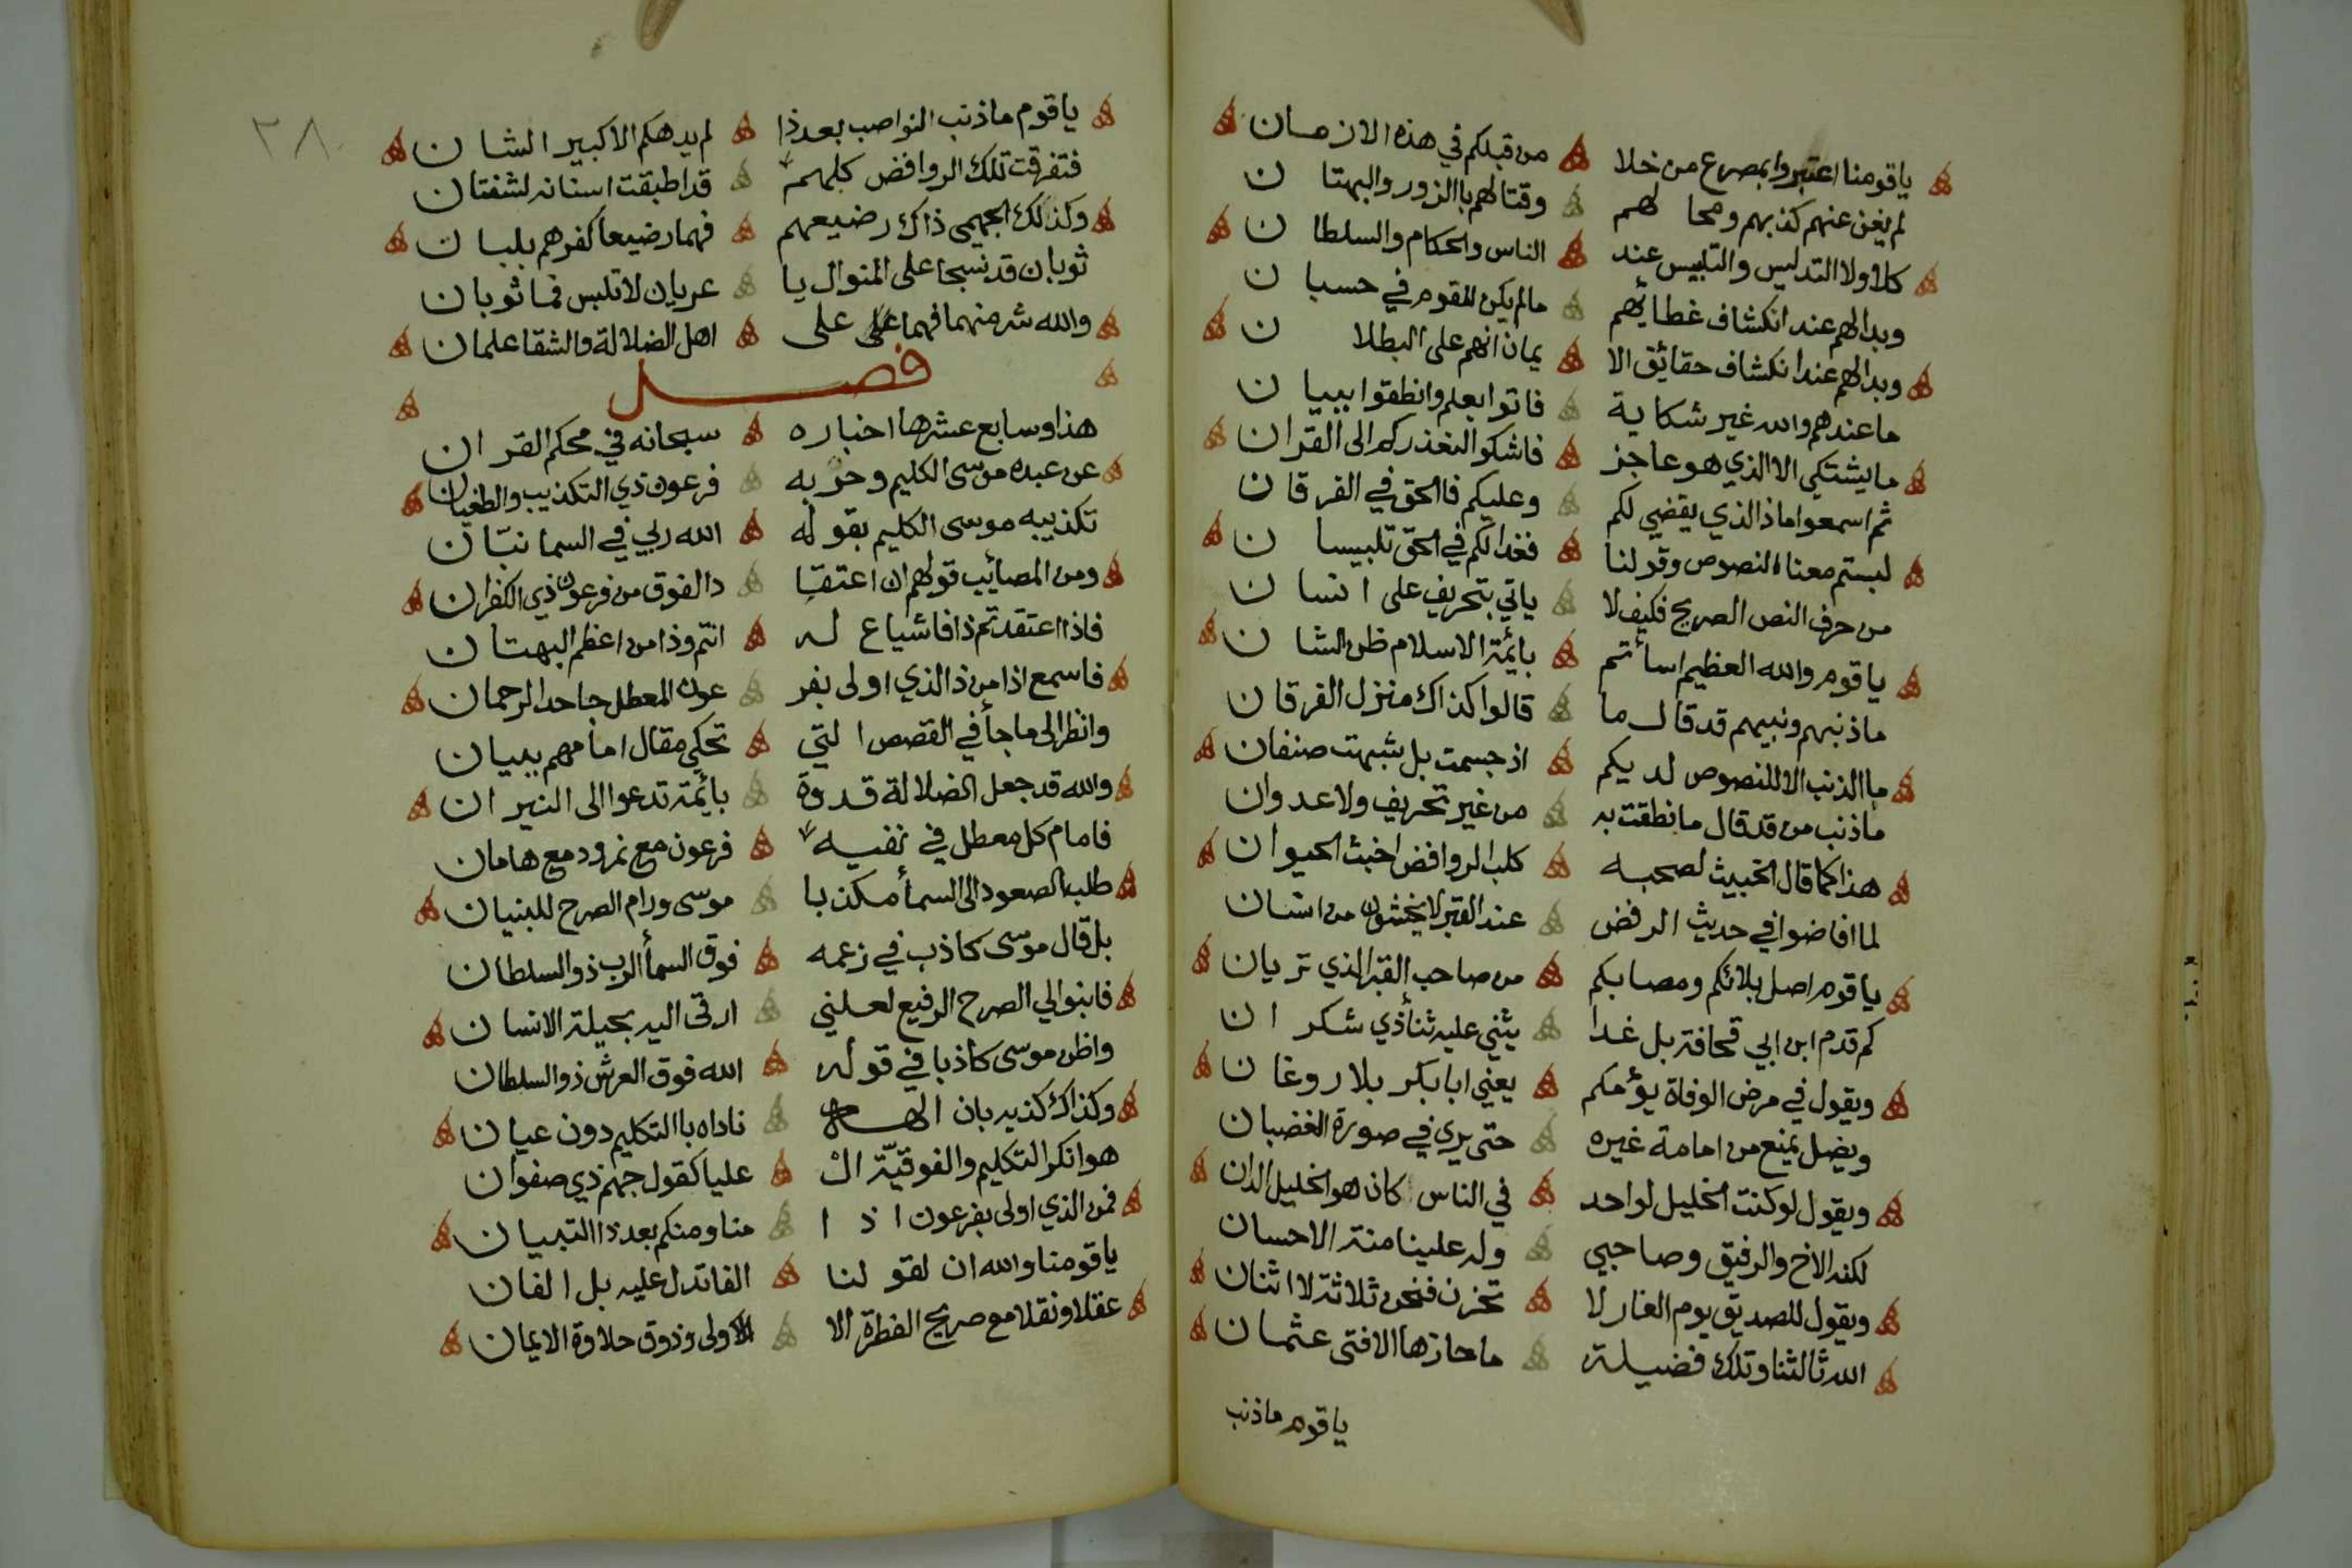 ياقومنا اعتبروا بمصرع من خلا من قبلكم في هذه الازمان
لم يغن عنهم كذبهم ومحالهم وقتالهم باالزور والبهتان
كلا ولا التدليس والتلبيس عند الناس والحكام والسلطان
وبدالهم عند انكشاف غطائهم مالم يكن للقوم في حسبان
وبدالهم عند انكشاف حقائق الا يمان انهم على البطلان
ما عندهم والله غير شكاية فاتوا بعلم وانطقوا ببيان
ما يشتكي الا الذي هو عاجز فاشكوا لنعذركم الى القران
ثم اسمعوا ماذا الذي يقضي لكم وعليكم فاالحق في الفرقان
لبستم معنا النصوص وقولنا فغدا لكم في الحق تلبيسان
من حرف النص الصريح فكيف لا ياتي بتحريف على انسان
ياقوم والله العظيم اسأتم بائمة الاسلام ظن الشان
ما ذنبهم ونبيهم قد قال ما قالوا كذاك منزل الفرقان
ما الذنب الا للنصوص لديكم اذ جسمت بل شبهت صنفان
ما ذنب من قد قال ما نطقت به من غير تحريف ولا عدوان
هذا كما قال الخبيث لصحبه كلب الروافض اخبث الحيوان
لما افاضوا في حديث الرفض عند القبر لا يخشون من انسان
ياقوم اصل بلائكم ومصابكم من صاحب القبر الذي تريان
كم قدم ابن ابي قحافة بل غدا يثني عليه ثنأ ذي شكران
ويقول في مرض الوفاة يؤمكم يعني ابا بكر بلا روغان
ويضل يمنع من امامة غيره حتى يري في صورة الغضبان
ويقول لو كنت الخليل لواحد في الناس كان هو الخليل الدان
لكنه الاخ والرفيق وصاحبي وله علينا منة الاحسان
ويقول للصديق يوم الغار لا تحزن فنحن ثلاثة لا اثنان
الله ثالثنا وتلك فضيلة ما حازها الا فتى عثمان
ياقوم ماذنب
٣٨
ياقوم ماذنب النواصب بعد ذا لم يدهكم الا كبير الشان
فتفرقت تلك الروافض كلهم قد اطبقت اسنانه لشفتان
وكذلك الجهمي ذاك رضيعهم فهما رضيعا كفرهم بلبان
ثوبان قد نسجا على المنوال يا عريان لا تلبس فما ثوبان
والله شر منهما فهما على على اهل الضلالة والشقا علمان
فصل
هذا وسابع عشرها اخباره سبحانه في محكم القران
عن عبده موسى الكليم وحربه فرعون ذي التكذيب والطغيان
تكذيبه موسى الكليم بقوله الله ربي في السما نبّان
ومن المصائب قولهم ان اعتقا دالفوق من فرعون ذي الكفران
فاذا اعتقدتم ذا فاشياع له انتم وذا من اعظم البهتان
فاسمع اذا من ذا الذي اولى بفر عون المعطل جاحد الرحمان
وانظر الى ما جأ في القصص التي تحكي مقال امامهم ببيان
والله قد جعل الضلالة قدوة بائمة تدعوا الى النيران
فامام كل معطل في نفيه فرعون مع نمرود مع هامان
طلب الصعود الى السمأ مكذبا موسى ورام الصرح للبنيان
بل قال موسى كاذب في زعمه فوق السمأ الرب ذو السلطان
فابنوا لي الصرح الرفيع لعلني ارقى اليه بحيلة الانسان
واظن موسى كاذبا في قوله الله فوق العرش ذو السلطان
وكذاك كذبه بان الهه ناداه باالتكليم دون عيان
هو انكر التكليم والفوقيّة ال عليا كقول جهم ذي صفوان
فمن الذي اولى بفرعون اذا منا ومنكم بعد ذا التبيان
ياقومنا والله ان لقولنا الفا تدل عليه بل الفان
عقلا ونقلا مع صريح الفطرة الا الاولى وذوق حلاوة الايمان